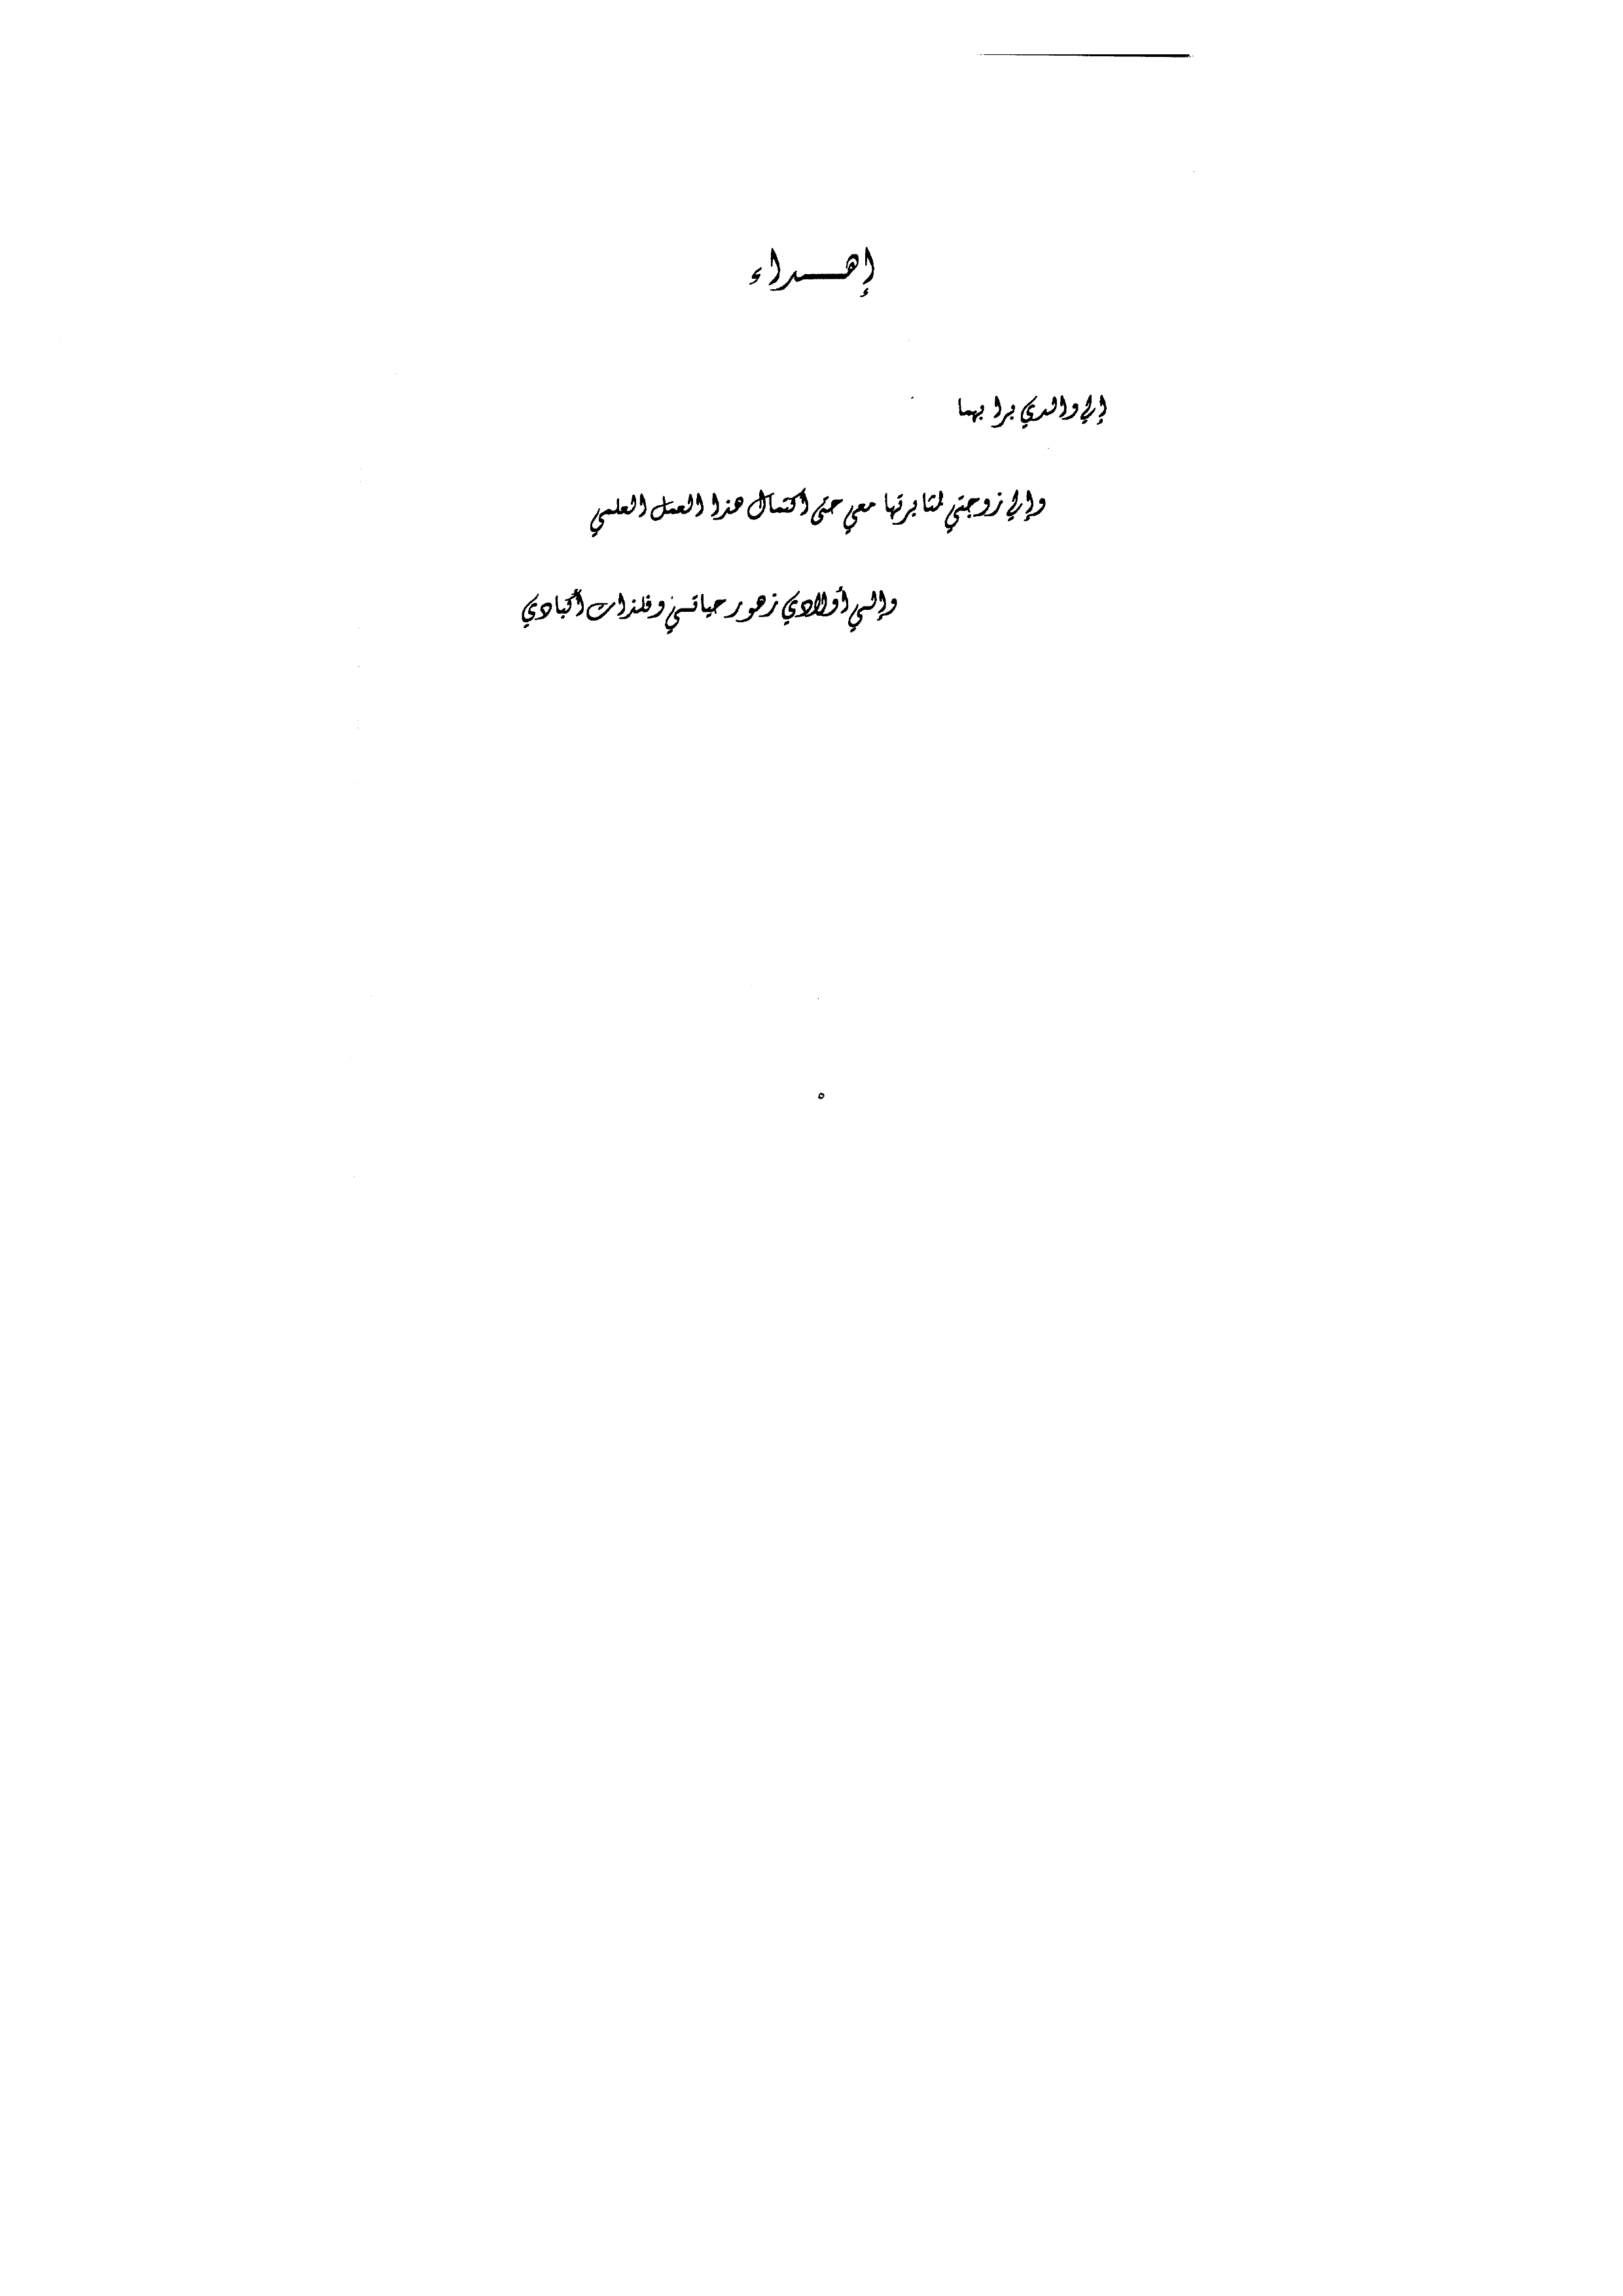 إهــــداء
إلي والدي برا بهما
وإلي زوجتي لمثابرتها معي حتى اكتمال هذا العمل العلمي
وإلـي أولادي زهور حياتـي وفلذات أكبادي
٥